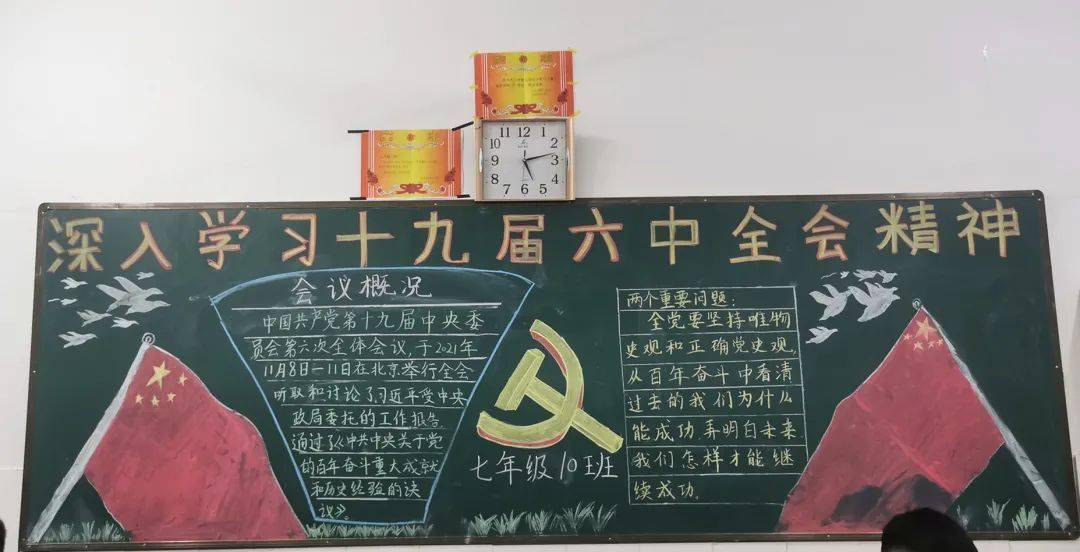 深入学习十九届六中全会精神
会议概况
中国共产党第十九届中央委
员会第六次全体会议,于2021年
11月8日-11日在北京举行全会
听取和讨论了习近平受中央
政局委托的工作报告
通过了《中共中央关于党
的百年奋斗重大成就
和历史经验的决
议》。
七年级10班
两个重要问题:
全党要坚持唯物
史观和正确党史观,
从百年奋斗中看清
过去的我们为什么
能成功、弄明白未来
我们怎样才能继
续成功。
11 12 1
10 2
9 3
8 4
7 6 5